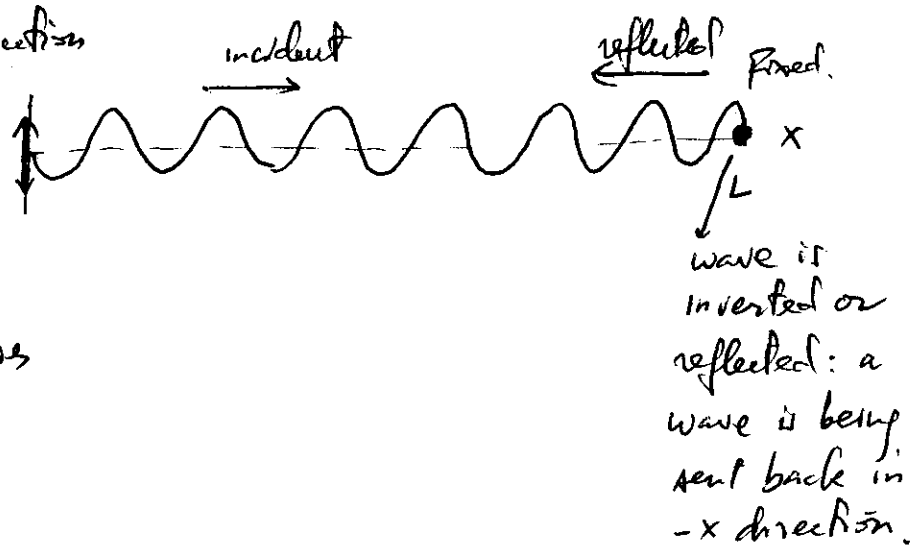 incident
reflected
Fixed.
X
L
wave is
inverted or
reflected: a
wave is being
sent back in
-x direction.